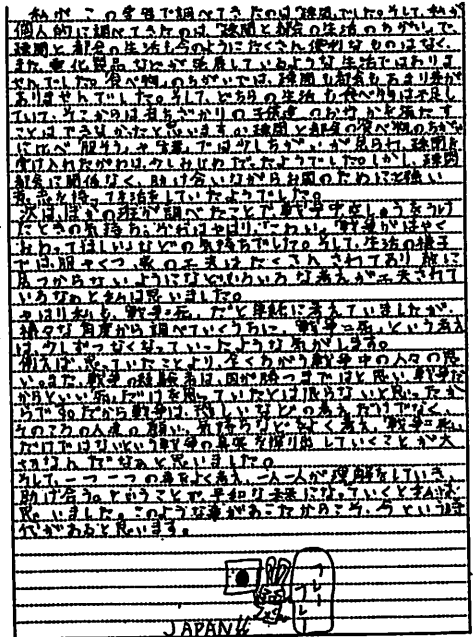 私が この学習で調べてきたのは「疎開」でした。そして、私が
個人的に調べてきたのは、「疎開と都会の生活のちがい」で、
疎開と都会の生活も今のようにたくさん便利なものはなく、
また、電化製品などが発展しているような生活ではありま
せんでした。食べ物のちがいでは、疎開も都会もあまり差が
ありませんでした。そして、どちらの生活も食べ物は不足し
ていて、そこからは育ちざかりの子供達
ことはできなかったと思います。疎開と都会の食べ物のちがい
に比べ、服そう、では少しちがいが見られ、疎開を
受け入れたがわは、少しみじめだったようでした。しかし、疎開
都会に関係なく、助け合いながらお国のためにと強い
意志を持って生活をしていたようでした。
次は、ほかの班が調べたことで、戦争中空しゅうをうけ
たときの気持ち、それはやはり、「こわい」「戦争がはやく
おわってほしい」などの気持ちでした。そして、生活の様子
では、服やくつ、家の工夫はたくさんされており、敵に
見つからないようになどいろいろな考えが工夫されて
いるなあと私は思いました。
やはり私も、「戦争=死」だと単純に考えていましたが、
様々な角度から調べていくうちに、「戦争=死」という考え
は少しずつなくなっていったような気がします。
例えば、思っていたことより、全くちがう戦争中の人々の思
い。また、戦争の経験者は、国が勝つまではと思い、戦争だ
からといい、死だけを思っていたとは限らないと思ったか
らです。だから戦争は、恐しいなどの考えだけでなく、
そのころの人達の願い、気持ちなどをよく考え、「戦争=死」
だけではないという戦争の真実を掘り出していくことが大
さなんだなあと思いました。
そして、一つ一つの事をよく考え、一人一人が理解をしていき、
助け合う。ということで、平和な未来になっていくと私は
思いました。このような事があったからこそ、今という時
代があると思います。
フレーフレー
JAPAN!!